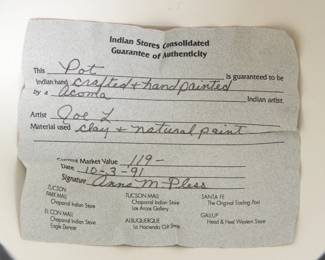 Indian Stores Consolidated
Guarantee of Authenticity
This Pot is guaranteed to be
Indian hand crafted & hand painted
by a Acoma Indian artist.
Artist Joe L
Material used clay & natural paint
Current Market Value 119-
Date 10-3-91
Signature Anna M Pless
TUCSON TUCSON MALL SANTA FE
PARK MALL Chaparral Indian Store The Original Trading Post
Chaparral Indian Store Los Arcos Gallery
EL CON MALL ALBUQUERQUE GALLUP
Chaparral Indian Store La Hacienda Gift Shop Head & Heel Western Store
Eagle Dancer